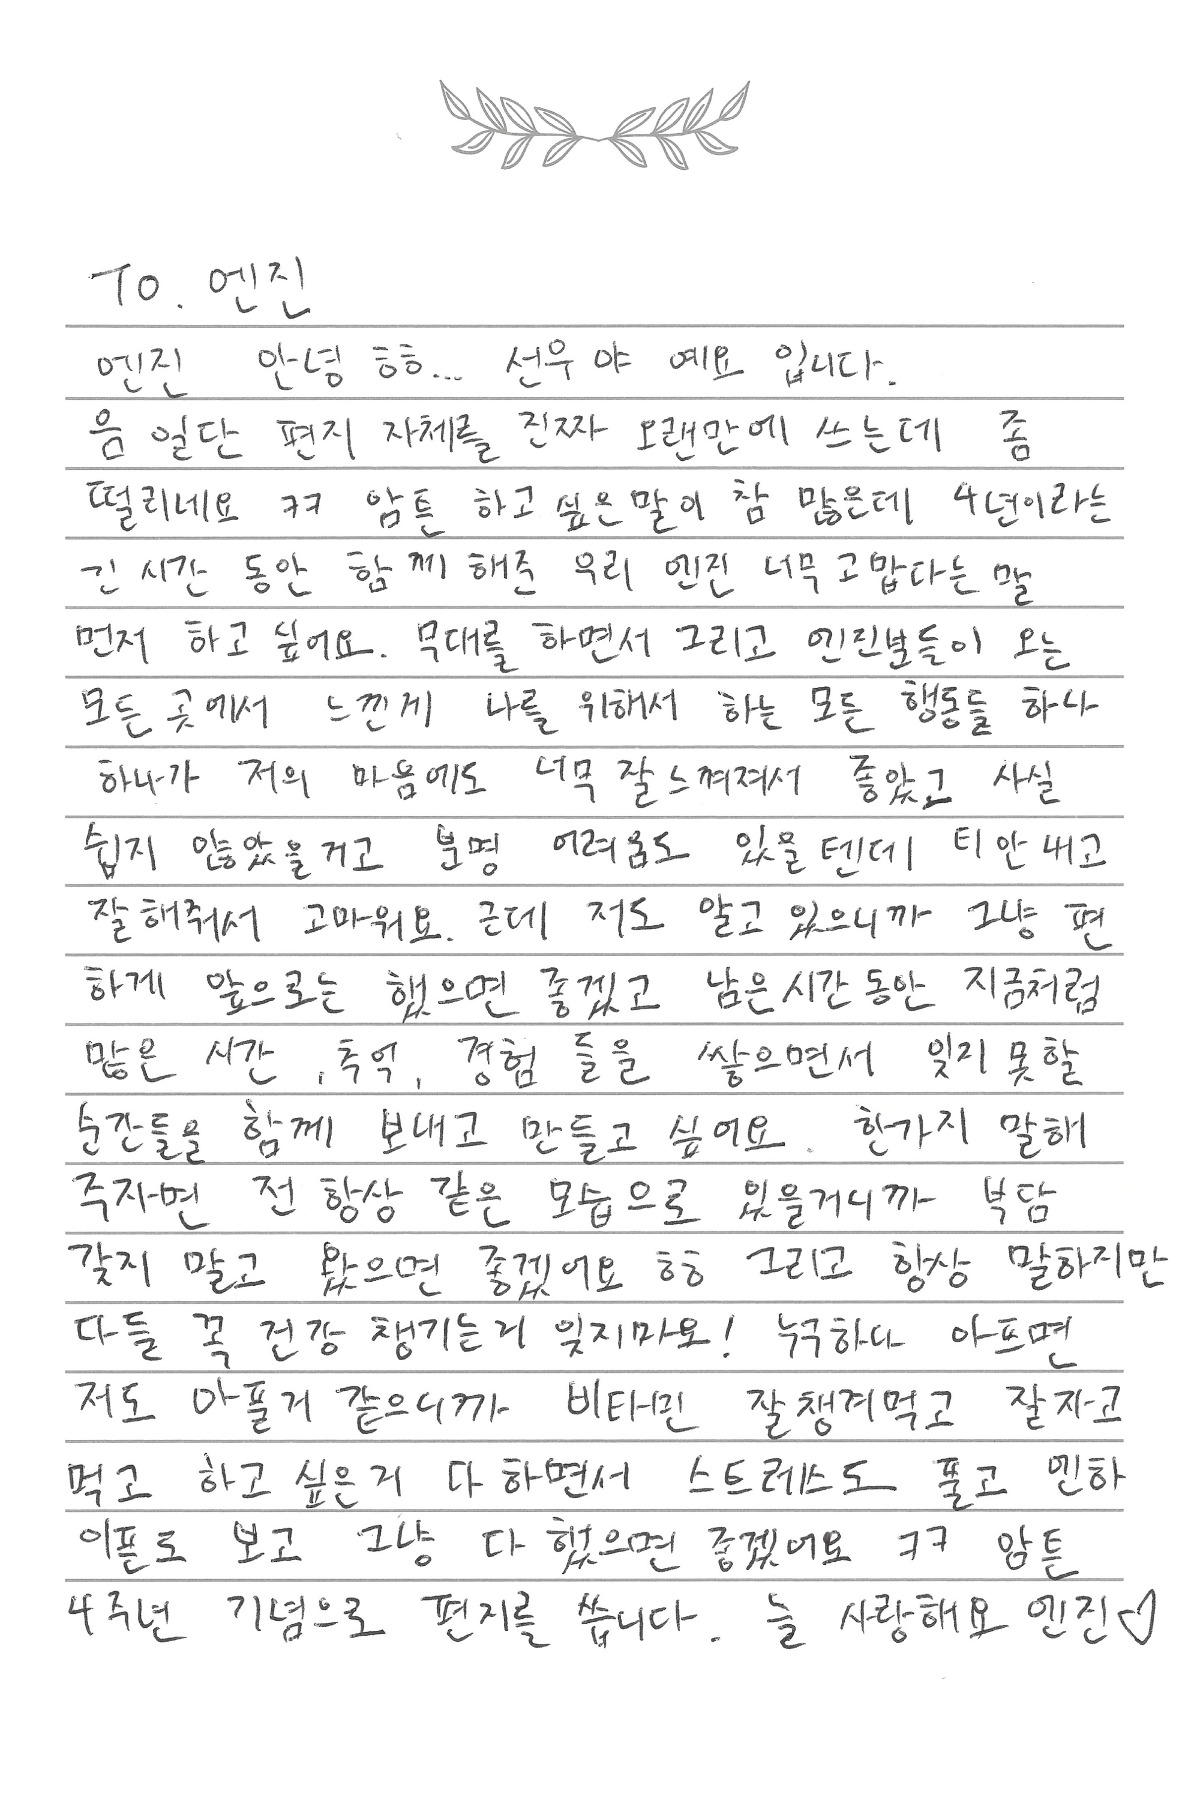 To. 엔진
엔진 안녕 ㅎㅎ... 선우 야 예요 입니다.
음 일단 편지 자체를 진짜 오랜만에 쓰는데 좀
떨리네요 ㅋㅋ 암튼 하고싶은말이 참 많은데 4년이라는
긴 시간 동안 함께 해준 우리 엔진 너무 고맙다는 말
먼저 하고 싶어요. 무대를 하면서 그리고 엔진분들이 오는
모든 곳에서 느낀게 나를 위해서 하는 모든 행동들 하나
하나가 저의 마음에도 너무 잘 느껴져서 좋았고 사실
쉽지 않았을거고 분명 어려움도 있을텐데 티 안 내고
잘해줘서 고마워요. 근데 저도 알고 있으니까 그냥 편
하게 앞으로는 했으면 좋겠고 남은시간 동안 지금처럼
많은 시간 , 추억, 경험 들을 쌓으면서 잊지 못할
순간들을 함께 보내고 만들고 싶어요. 한가지 말해
주자면 전 항상 같은 모습으로 있을거니까 부담
갖지 말고 왔으면 좋겠어요 ㅎㅎ 그리고 항상 말하지만
다들 꼭 건강 챙기는거 잊지마요! 누구하나 아프면
저도 아플거 같으니까 비타민 잘챙겨먹고 잘자고
먹고 하고싶은거 다 하면서 스트레스도 풀고 엔하
이픈도 보고 그냥 다 했으면 좋겠어요 ㅋㅋ 암튼
4주년 기념으로 편지를 씁니다. 늘 사랑해요 엔진♡